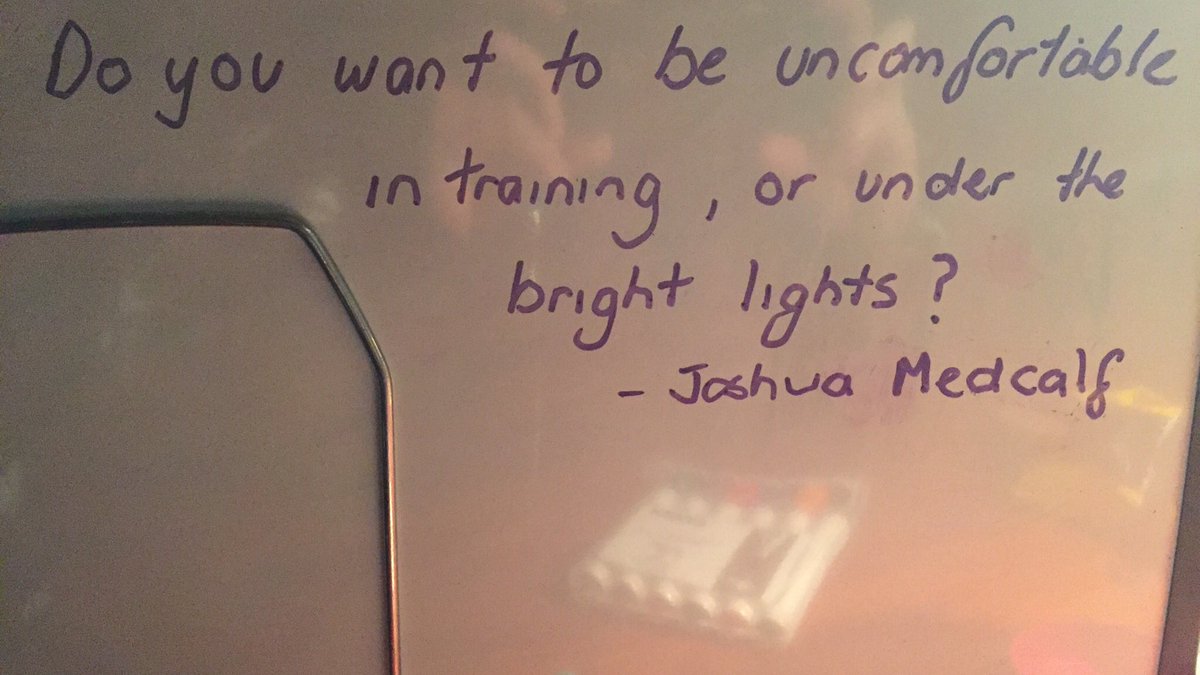 Do you want to be uncomfortable
in training, or under the
bright lights?
- Joshua Medcalf